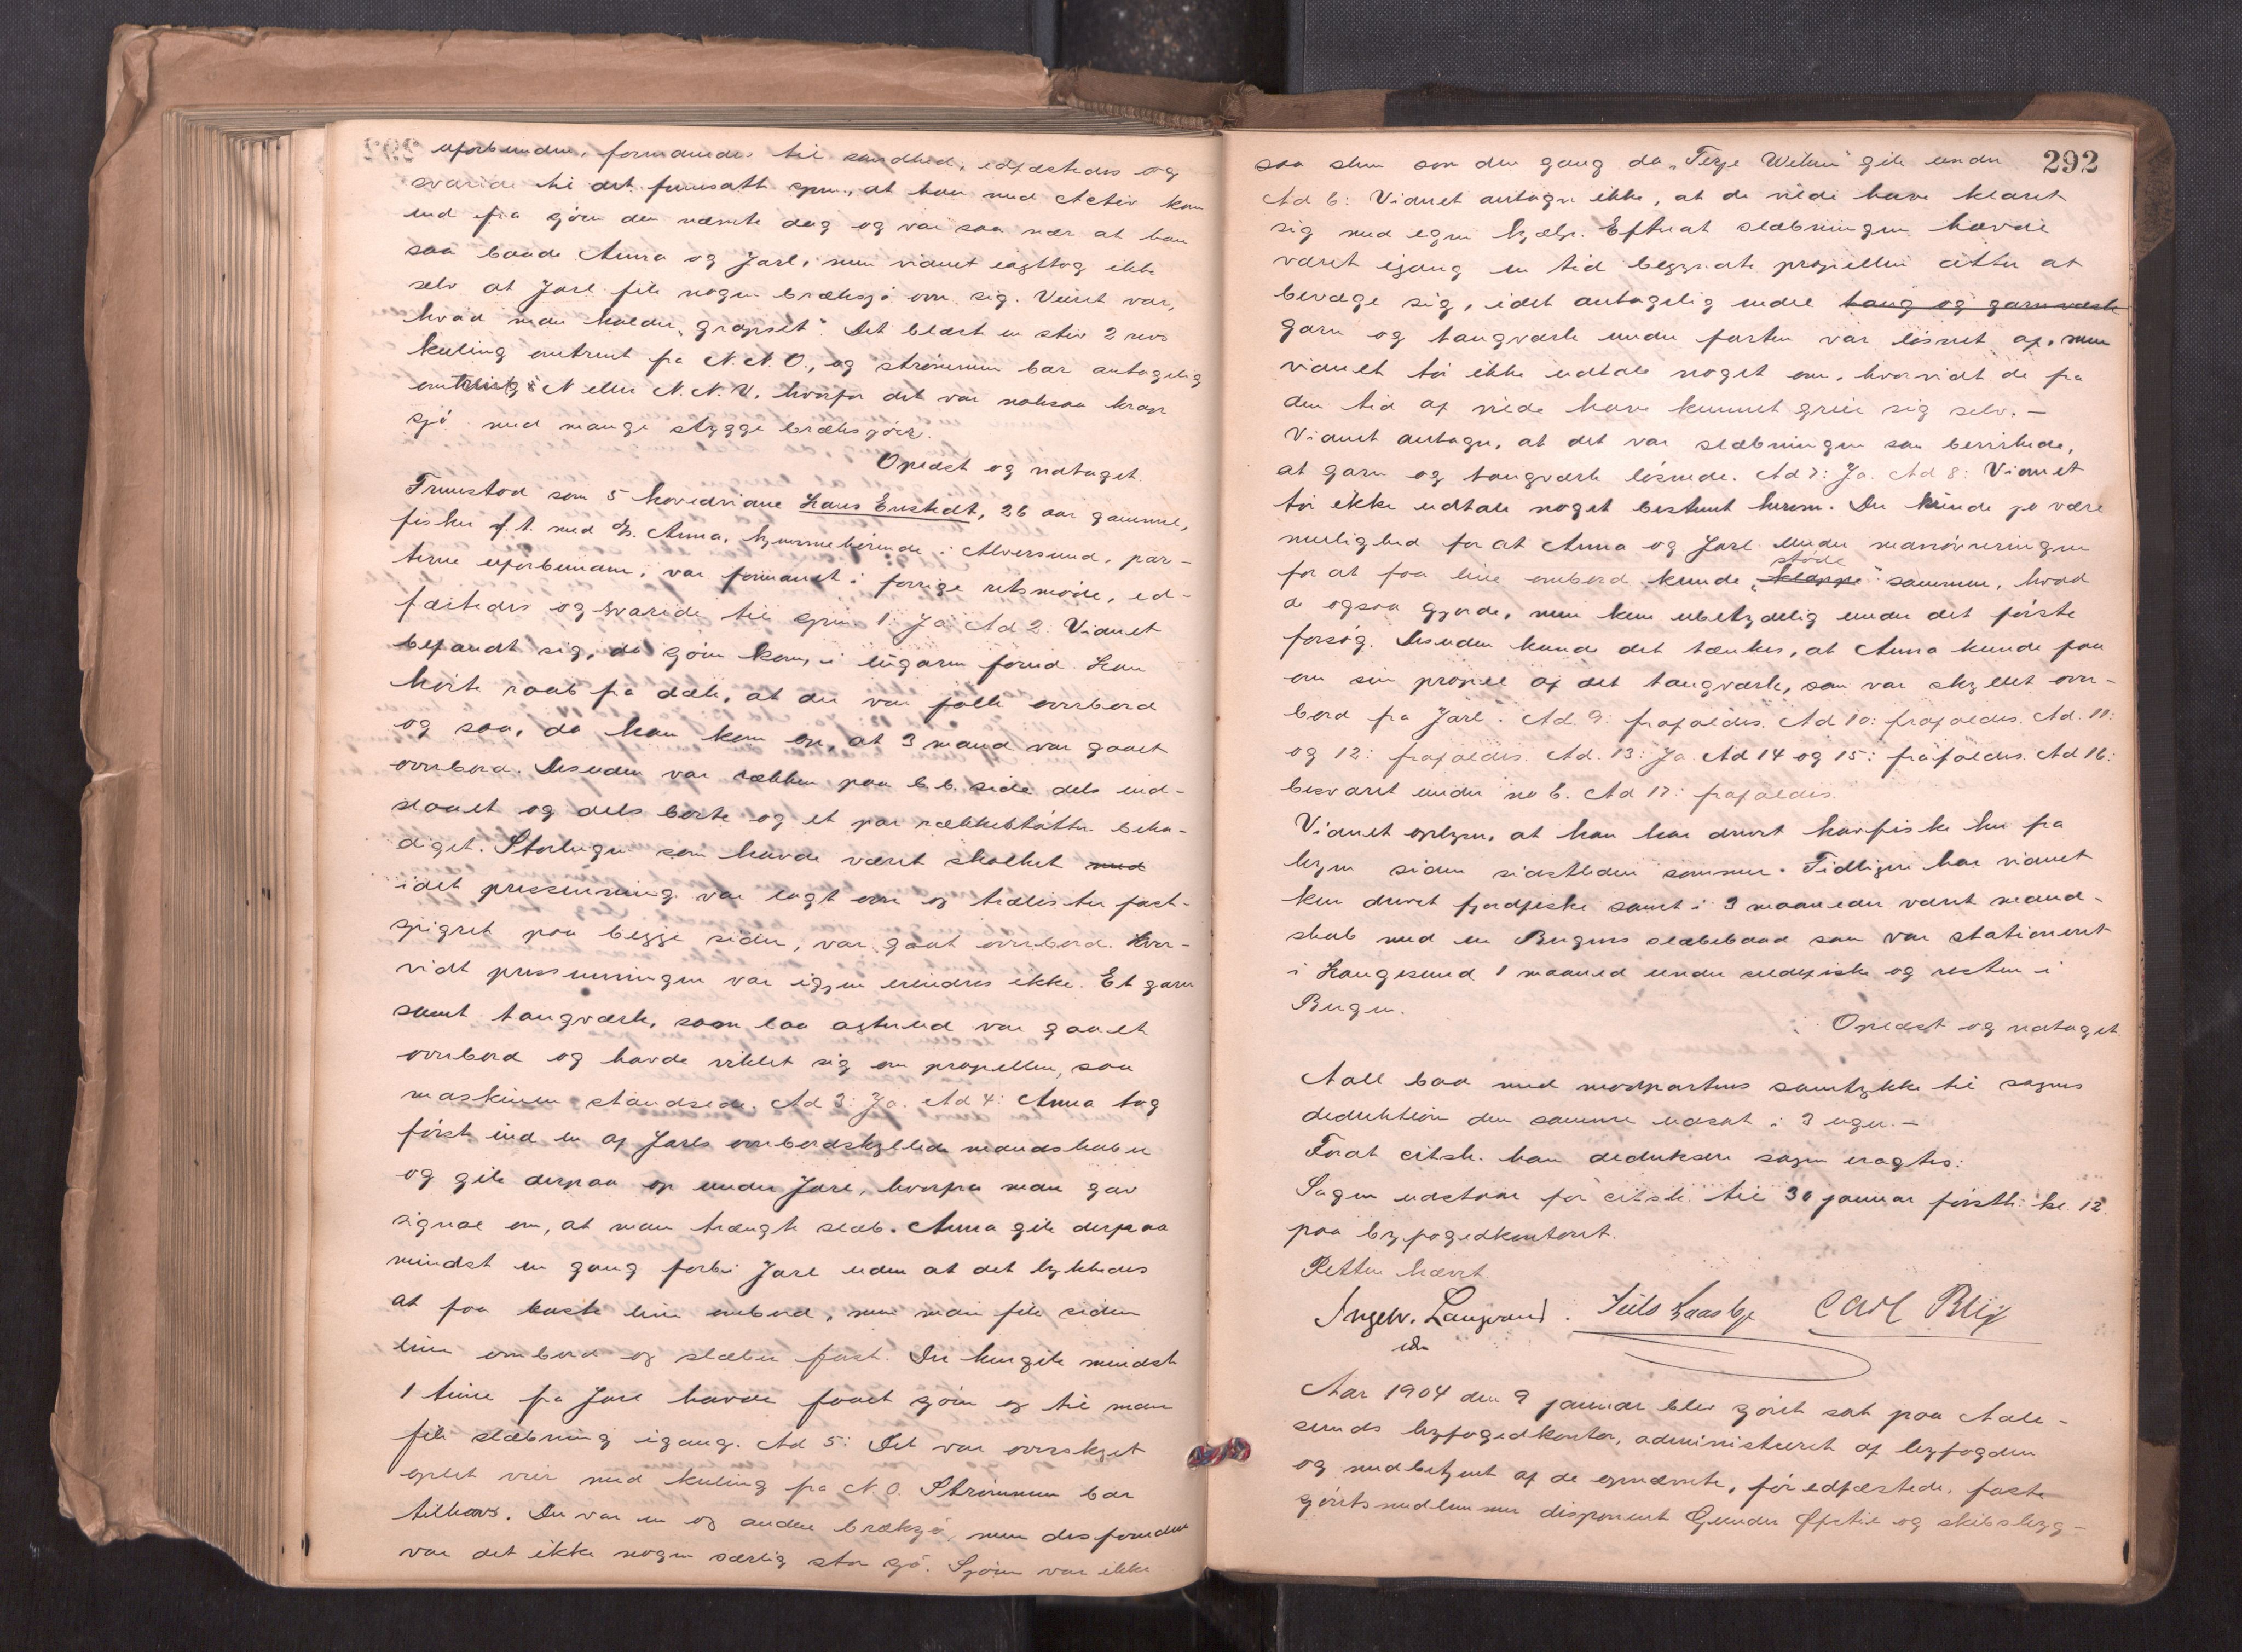 uforbunden, formandes til sandhed, edfæstedes og
svarede til det fremsatte spm., at han med Activ kom
ind fra sjøen den næmte dag og var saa nær at han
saa baade Anna og Jarl, men vidnet iagttog ikke
selv at Jarl fik nogen bræksjø over sig. Veiret var,
hvad man kalder "grapset". Det blæste en stiv 2 revs
kuling omtrent fra N.N.O., og strømmen bar antagelig
omtrent i N eller N.N.V. hvorfor det var noksaa krap
sjø med mange stygge bræksjøer.
Oplæst og vedtaget.
Fremstod som 5 hovedvidne Hans Enstedt, 26 aar gammel,
fisker f. t. med D/S. Anna, hjemmehørende i Alversund, par-
terne uforbunden, var formanet i forrige retsmøde, ed-
fæstedes og svarede til spm. 1: Ja Ad 2: Vidnet
befandt sig, da sjøen kom, i lugaren forud. Han
hørte raab fra dæk, at der var folk overbord
og saa, da han kom op, at 3 mand var gaaet
overbord. Desuden var rækken paa b.b. side dels ind-
slaaet og dels borte og et par rækkestøtter beska-
diget. Storlugen som havde været skalket med
idet pressenning var lagt over og trælister fast-
spigret paa begge sider, var gaat overbord. Hvor-
vidt pressenningen var igjen erindres ikke. Et garn
samt taugværk, som laa agterud var gaaet
overbord og havde viklet sig om propellen, saa
maskinen standsede. Ad 3: Ja. Ad 4: Anna tog
først ind en af Jarls overbordskyllede mandskaber
og gik derpaa op under Jarl, hvorfra man gav
signal om, at man trængte slæb. Anna gik derpaa
mindst en gang forbi Jarl uden at det lykkedes
at faa kaste line ombord, men man fik siden
line ombord og slæber fast. Der hengik mindst
1 time fra Jarl havde faaet sjøen og til man
fik slæbning igang. Ad 5: Det var overskyet
oplet veir med kuling fra N.O. Strømmen bar
tilhavs. Der var en og anden bræksjø, men desforuden
var det ikke nogen særlig stor sjø. Sjøen var ikke
292
saa slem som den gang da "Terje Wiken" gik under
Ad 6: Vidnet antager ikke, at de vilde have klaret
sig med egen hjælp. Efterat slæbningen havde
været igang en tid begyndte propellen atter at
bevæge sig, idet antagelig endel taug og garn væske
garn og taugværk under farten var løsnet af, men
vidnet tør ikke udtale noget om, hvorvidt de fra
den tid af vilde have kunnet greie sig selv. —
Vidnet antager, at det var slæbningen som bevirkede,
at garn og taugværk løsnede. Ad 7: Ja. Ad 8: Vidnet
tør ikke udtale noget bestemt herom. Der kunde jo være
mulighed for at Anna og Jarl under manøvreringen
støde
for at faa line ombord kunde "klappe" sammen, hvad
de ogsaa gjorde, men kun ubetydelig under det første
forsøg. Desuden kunde det tænkes, at Anna kunde faa
om sin propel af det taugværk, som var skyllet over-
bord fra Jarl. Ad. 9: frafaldes. Ad 10: frafaldes. Ad. 11:
og 12: frafaldes. Ad. 13: Ja. Ad 14 og 15: frafaldes. Ad 16:
besvaret under no 6. Ad 17: frafaldes.
Vidnet oplyser, at han har drevet havfiske her fra
byen siden sidstleden sommer. Tidligere har vidnet
kun drevet fjordfiske samt i 3 maaneder været mand-
skab med en Bergens slæbebaad som var stationeret
i Haugesund 1 maaned under sildefiske og resten i
Bergen.
Oplæst og vedtaget.
Aall bad med modpartens samtykke til sagens
deduktion den samme udsat i 3 uger. —
Forat citsk. kan deduksere sagen eragtes:
Sagen udstaar for citsk. til 30 januar førstk. kl. 12.
paa byfogedkontoret.
Retten hævet
Ingelv. Langvand. Niels Haasby Carl Blix
Aar 1904 den 9 januar blev sjøret sat paa Aale-
sunds byfogedkontor, administreret af byfogden
og medbetjent af de opnævnte, før edfæstede, faste
sjøretsmedlemmer disponent Gunder Ofstie og skibsbyg-